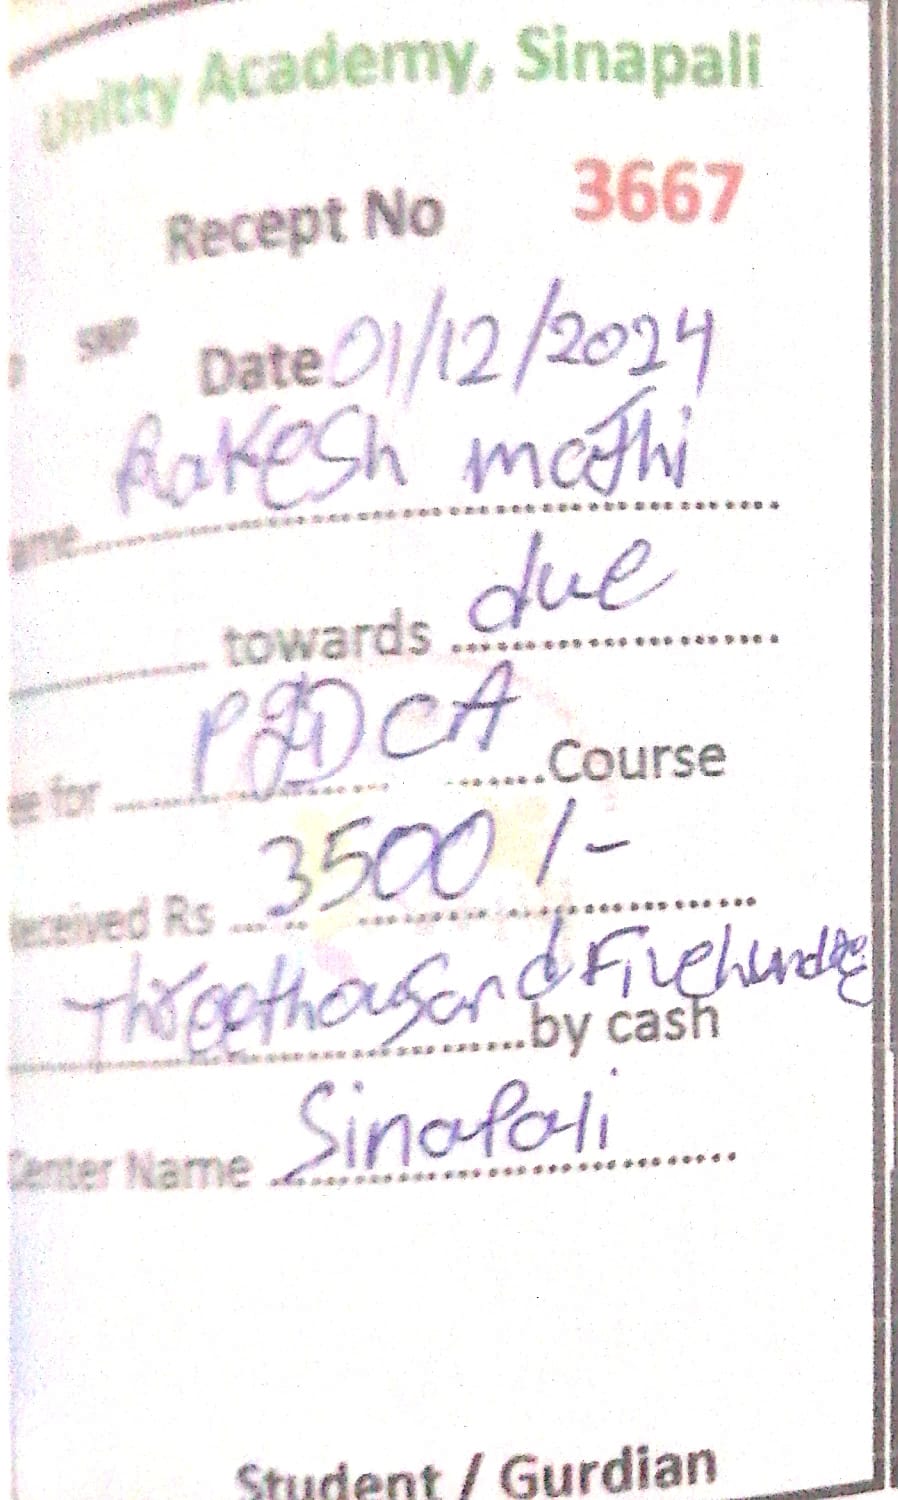 Unitty Academy, Sinapali
Recept No 3667
SNP
Date 01/12/2024
Rakesh
ame
towards due
e for PGDCA Course
eceived Rs 3500/-
Threethousand Fivehundre
by cash
Center Name Sinapali
Student / Gurdian